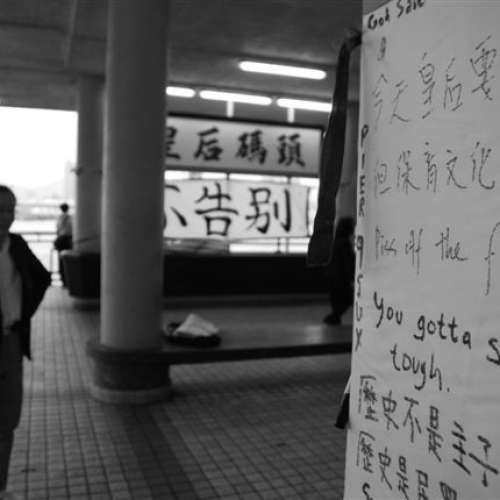 皇后碼頭
不告别
God Save
今天皇后要
但保育文化
Piss off the f
PIER 9 SUX
You gotta s
tough.
歷史不是
歷史是